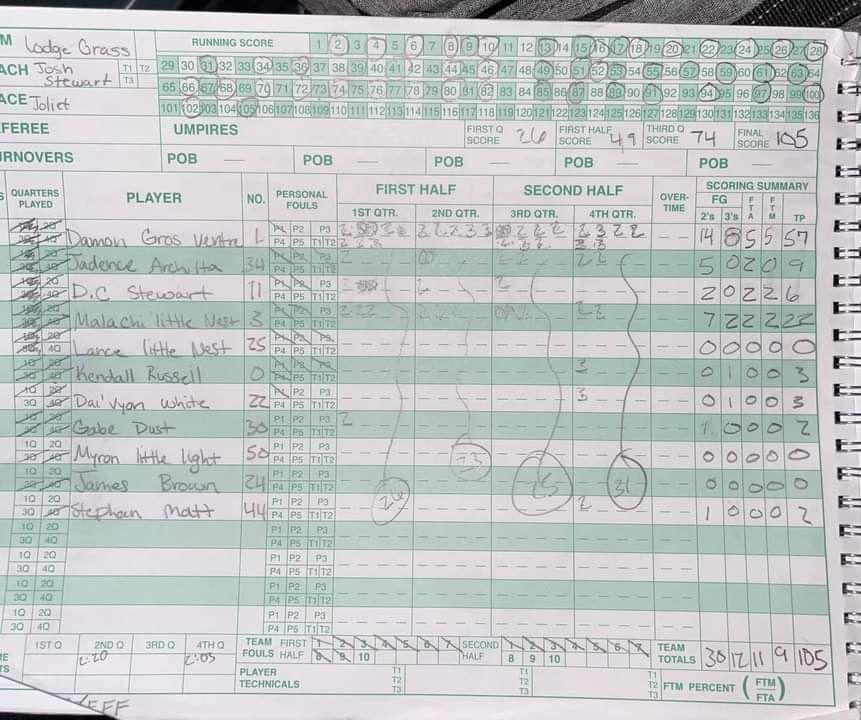 M Lodge Grass RUNNING SCORE 1 2 3 4 5 6 7 8 9 10 11 12 13 14 15 16 17 18 19 20 21 22 23 24 25 26 27 28
ACH Josh Stewart T1 T2 T3 29 30 31 32 33 34 35 36 37 38 39 40 41 42 43 44 45 46 47 48 49 50 51 52 53 54 55 56 57 58 59 60 61 62 63 64
65 66 67 68 69 70 71 72 73 74 75 76 77 78 79 80 81 82 83 84 85 86 87 88 89 90 91 92 93 94 95 96 97 98 99 100
ACE Joliet 101 102 103 104 105 106 107 108 109 110 111 112 113 114 115 116 117 118 119 120 121 122 123 124 125 126 127 128 129 130 131 132 133 134 135 136
FEREE UMPIRES FIRST Q SCORE 26 FIRST HALF SCORE 49 THIRD Q SCORE 74 FINAL SCORE 105
URNOVERS POB — POB — POB — POB — POB —
S QUARTERS PLAYED PLAYER NO. PERSONAL FOULS FIRST HALF SECOND HALF OVER-TIME SCORING SUMMARY
1ST QTR. 2ND QTR. 3RD QTR. 4TH QTR. FG 2's 3's FTA FTM TP
Damon Gros Ventre 1 P1 P2 P3 P4 P5 T1 T2 2 3 2 2 14 8 5 5 57
3 3
Jadence Archilta 34 P1 P2 P3 P4 P5 T1 T2 2 2 2 5 0 2 0 9
D.C Stewart 11 P1 P2 P3 P4 P5 T1 T2 2 0 2 2 6
Malachi little Nest 3 P1 P2 P3 P4 P5 T1 T2 2 2 2 2 2 7 2 2 2 22
Lance little Nest 25 P1 P2 P3 P4 P5 T1 T2 0 0 0 0 0
Kendall Russell 0 P1 P2 P3 P4 P5 T1 T2 3 0 1 0 0 3
Dai'vyon White 22 P1 P2 P3 P4 P5 T1 T2 3 0 1 0 0 3
Gabe Dust 30 P1 P2 P3 P4 P5 T1 T2 2 1 0 0 0 2
Myron little light 50 P1 P2 P3 P4 P5 T1 T2 0 0 0 0 0
James Brown 24 P1 P2 P3 P4 P5 T1 T2 0 0 0 0 0
26 23 25 31
Stephan Matt 44 P1 P2 P3 P4 P5 T1 T2 2 1 0 0 0 2
1Q 2Q P1 P2 P3
3Q 4Q P4 P5 T1 T2
1Q 2Q P1 P2 P3
3Q 4Q P4 P5 T1 T2
1Q 2Q P1 P2 P3
3Q 4Q P4 P5 T1 T2
1Q 2Q P1 P2 P3
3Q 4Q P4 P5 T1 T2
1ST Q 2ND Q 3RD Q 4TH Q TEAM FOULS FIRST HALF 1 2 3 4 5 6 7 SECOND HALF 1 2 3 4 5 6 7 TEAM TOTALS 30 12 11 9 105
2:20 2:05 8 9 10 8 9 10
PLAYER TECHNICALS T1 T2 T3 T1 T2 T3 T1 T2 T3 FTM PERCENT (FTM/FTA)
EFF